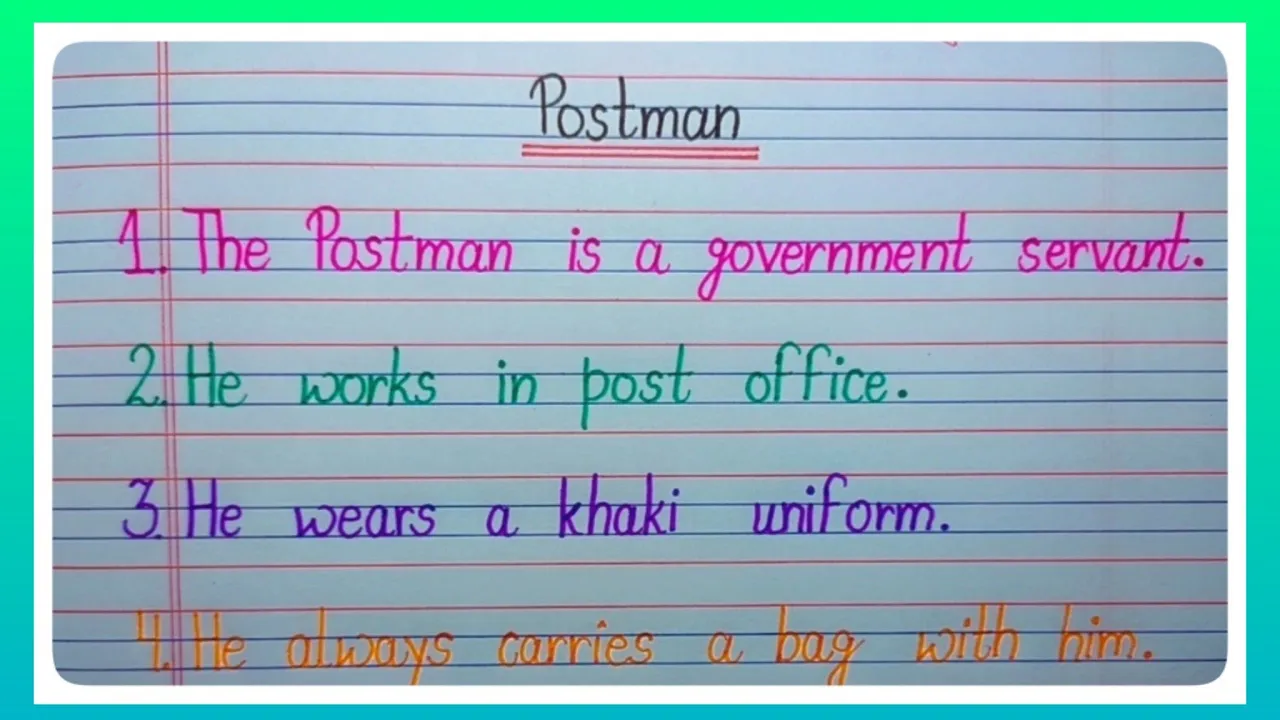 Postman
1. The Postman is a government servant.
2. He works in post office.
3. He wears a khaki uniform.
4. He always carries a bag with him.